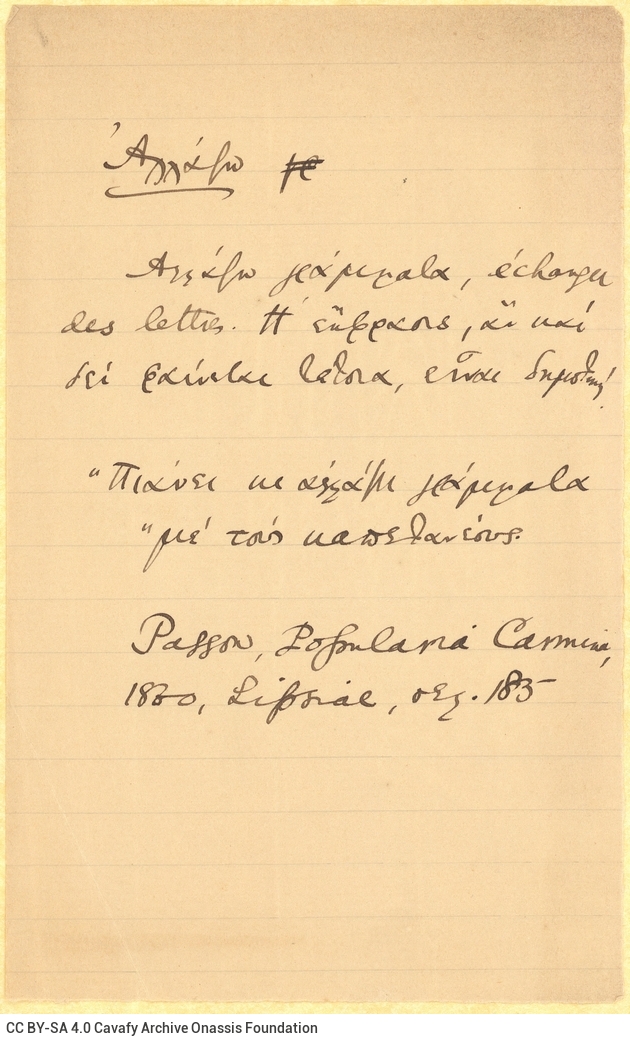 Ἀλλάζω
Αλλάζω γράμματα, échanger
des lettres. Η ἔκφρασις, ἂν καὶ
δεί φαίνεται τέτοια, εἶναι δημοτική.
"Πιάνει κι ἀλλάζει γράμματα
"μὲ τοὺς καπεταναίους.
Passow, Popularia Carmina,
1860, Lipsiae, σελ. 185
CC BY-SA 4.0 Cavafy Archive Onassis Foundation